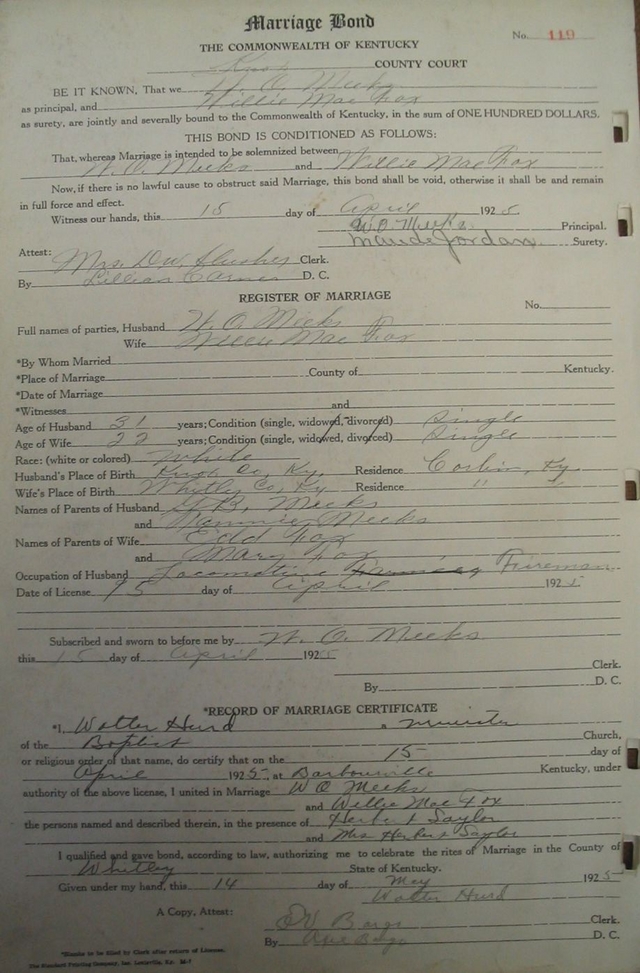 Marriage Bond
No. 119
THE COMMONWEALTH OF KENTUCKY
Knox COUNTY COURT
BE IT KNOWN, That we W. O. Meeks
as principal, and Willie Mae Fox
as surety, are jointly and severally bound to the Commonwealth of Kentucky, in the sum of ONE HUNDRED DOLLARS.
THIS BOND IS CONDITIONED AS FOLLOWS:
That, whereas Marriage is intended to be solemnized between
W. O. Meeks and Willie Mae Fox
Now, if there is no lawful cause to obstruct said Marriage, this bond shall be void, otherwise it shall be and remain
in full force and effect.
Witness our hands, this 15 day of April 1925.
W. O. Meeks Principal.
Maude Jordan Surety.
Attest:
Mrs. D W Slusher Clerk.
By Lillian Carnes D. C.
REGISTER OF MARRIAGE
No.
Full names of parties, Husband W. O. Meeks
Wife Willie Mae Fox
*By Whom Married
*Place of Marriage County of Kentucky.
*Date of Marriage
*Witnesses and
Age of Husband 31 years; Condition (single, widowed, divorced) Single
Age of Wife 22 years; Condition (single, widowed, divorced) Single
Race: (white or colored) White
Husband's Place of Birth Knox Co, Ky, Residence Corbin, Ky
Wife's Place of Birth Whitley Co, Ky Residence " "
Names of Parents of Husband B. Meeks
and Meeks
Names of Parents of Wife Edd Fox
and Mary Fox
Occupation of Husband Locomotive Fireman
Date of License 15 day of April 1925
Subscribed and sworn to before me by W. O. Meeks
this 15 day of April 1925
Clerk.
By D. C.
*RECORD OF MARRIAGE CERTIFICATE
*I, Walter Hurd a minister
of the Baptist Church,
or religious order of that name, do certify that on the 15 day of
April 1925, at Barbourville Kentucky, under
authority of the above license, I united in Marriage W O Meeks
and Willie Mae Fox
the persons named and described therein, in the presence of Herbert Saylor
and Mrs Herbert Saylor
I qualified and gave bond, according to law, authorizing me to celebrate the rites of Marriage in the County of
Whitley State of Kentucky.
Given under my hand, this 14 day of May 1925
Walter Hurd
A Copy, Attest:
Bargo Clerk.
By Bargo D. C.
*Blanks to be filled by Clerk after return of License.
The Standard Printing Company, Inc. Louisville, Ky.